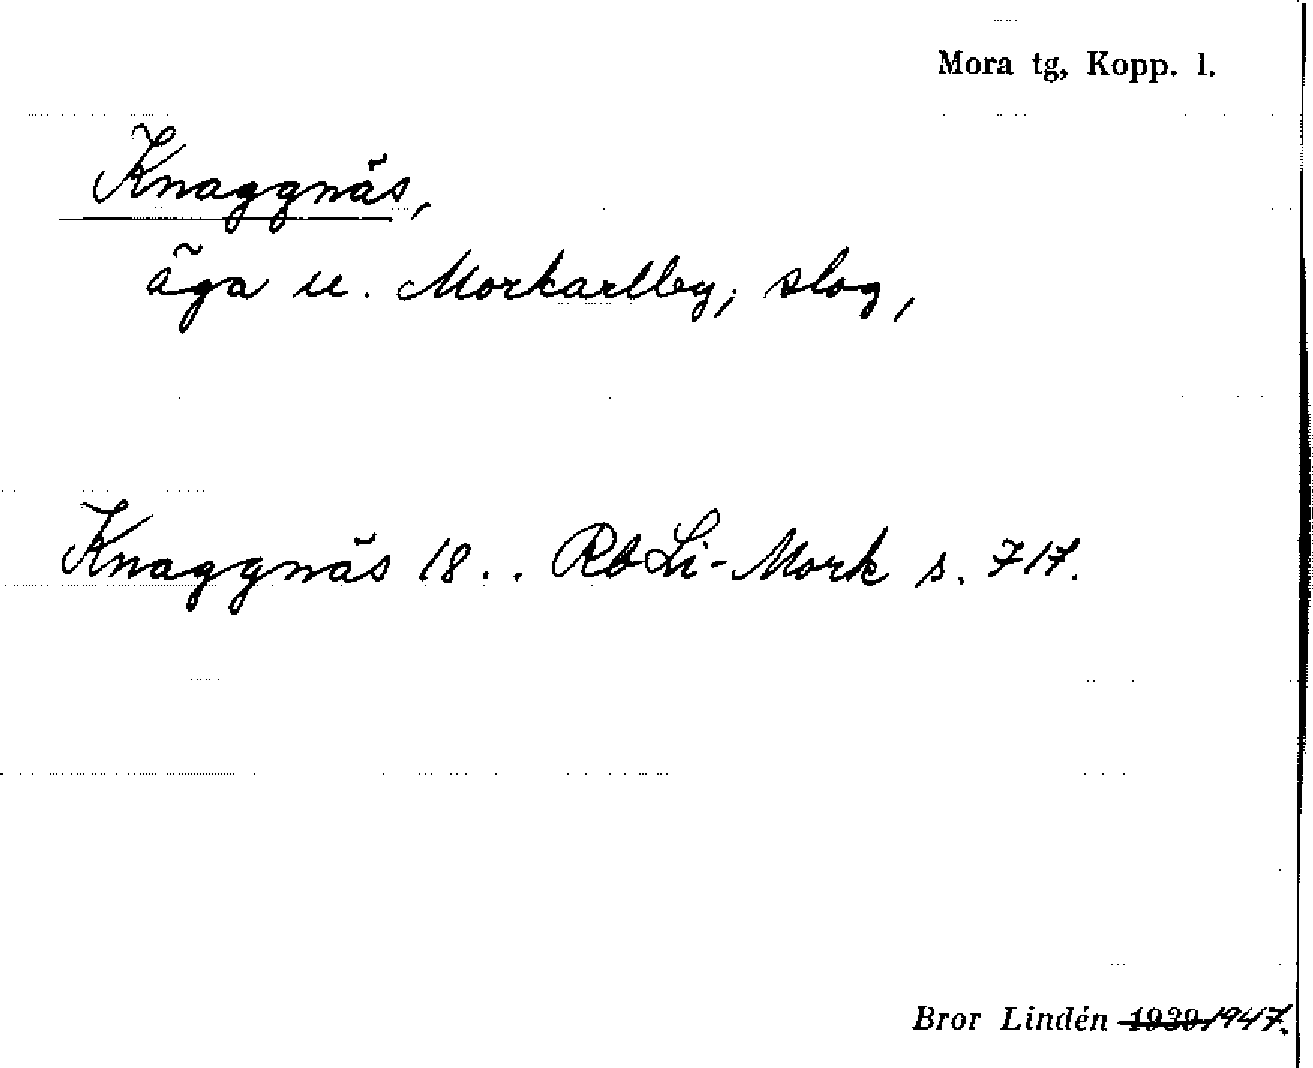 Mora tg, Kopp. l.
Knaggnäs,
äga u. Morkarlby, slog,
Knaggnäs 18.. Rb Li-Mork s. 717.
Bror Lindén 1939 1947.